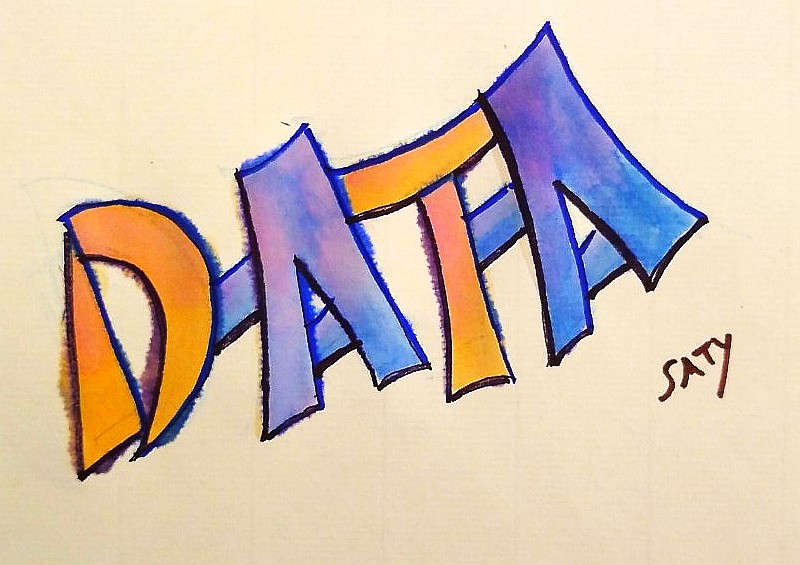 DATA
SATY